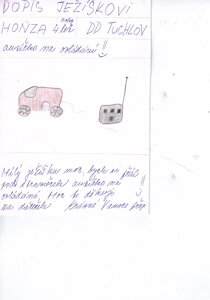 DOPIS JEŽÍŠKOVI
HONZA 4 let DD TUCHLOV
autíčko na ovládání!!
Milý ježíšku moc bych si přál
pod stromeček autíčko na
ovládání. Moc ti děkuji
za dáreček Krásné Vánoce